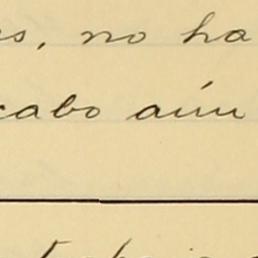 s, no ha
cabo aún